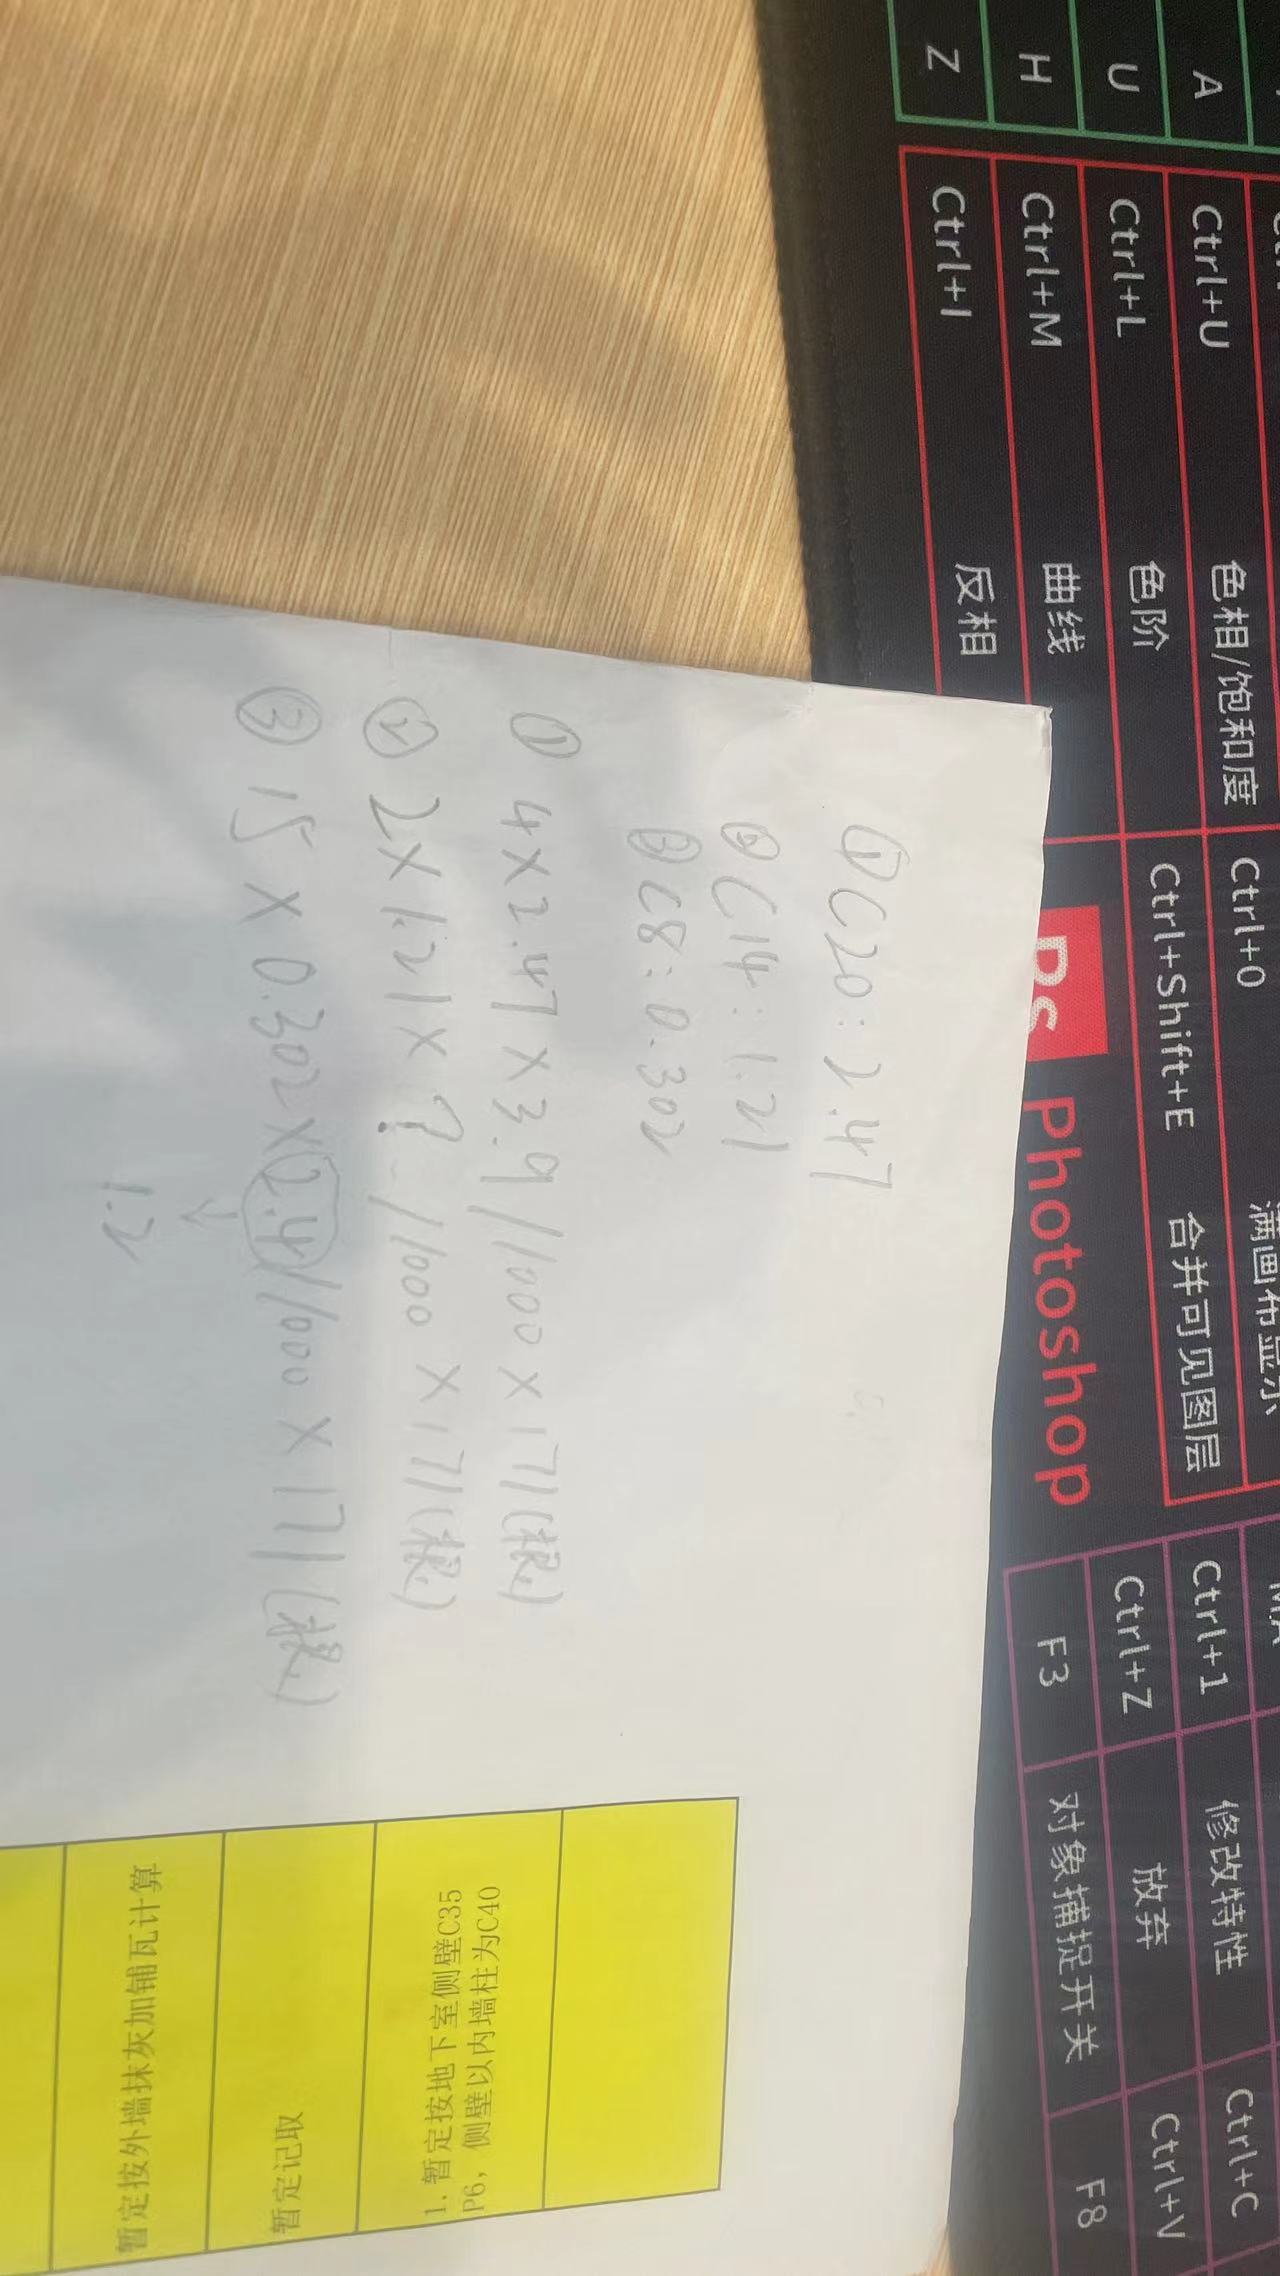 Z
H
U
A
Ctrl+I 反相
Ctrl+M 曲线
Ctrl+L 色阶
Ctrl+U 色相/饱和度
Ctrl+0
Ctrl+Shift+E 合并可见图层
Ps Photoshop
Ctrl+1 修改特性 Ctrl+C
Ctrl+Z 放弃 Ctrl+V
F3 对象捕捉开关 F8
① C20：2.47
② C14：1.21
③ C8：0.302
① 4×2.47×3.9/1000×171(根)
② 2×1.21×?../1000×171(根)
③ 15×0.302×2.4/1000×171(根)
↓
1.2
1. 暂定按地下室侧壁C35
P6，侧壁以内墙柱为C40
暂定记取
暂定按外墙抹灰加铺瓦计算